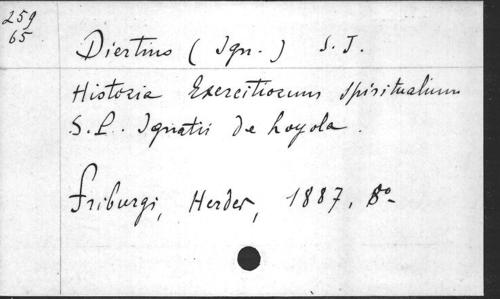 259
65
Diertins (Ign.) S. J.
Historia Exercitiorum spiritualium
S. P. Ignatii de Loyola.
Friburgi, Herder, 1887. 8o-